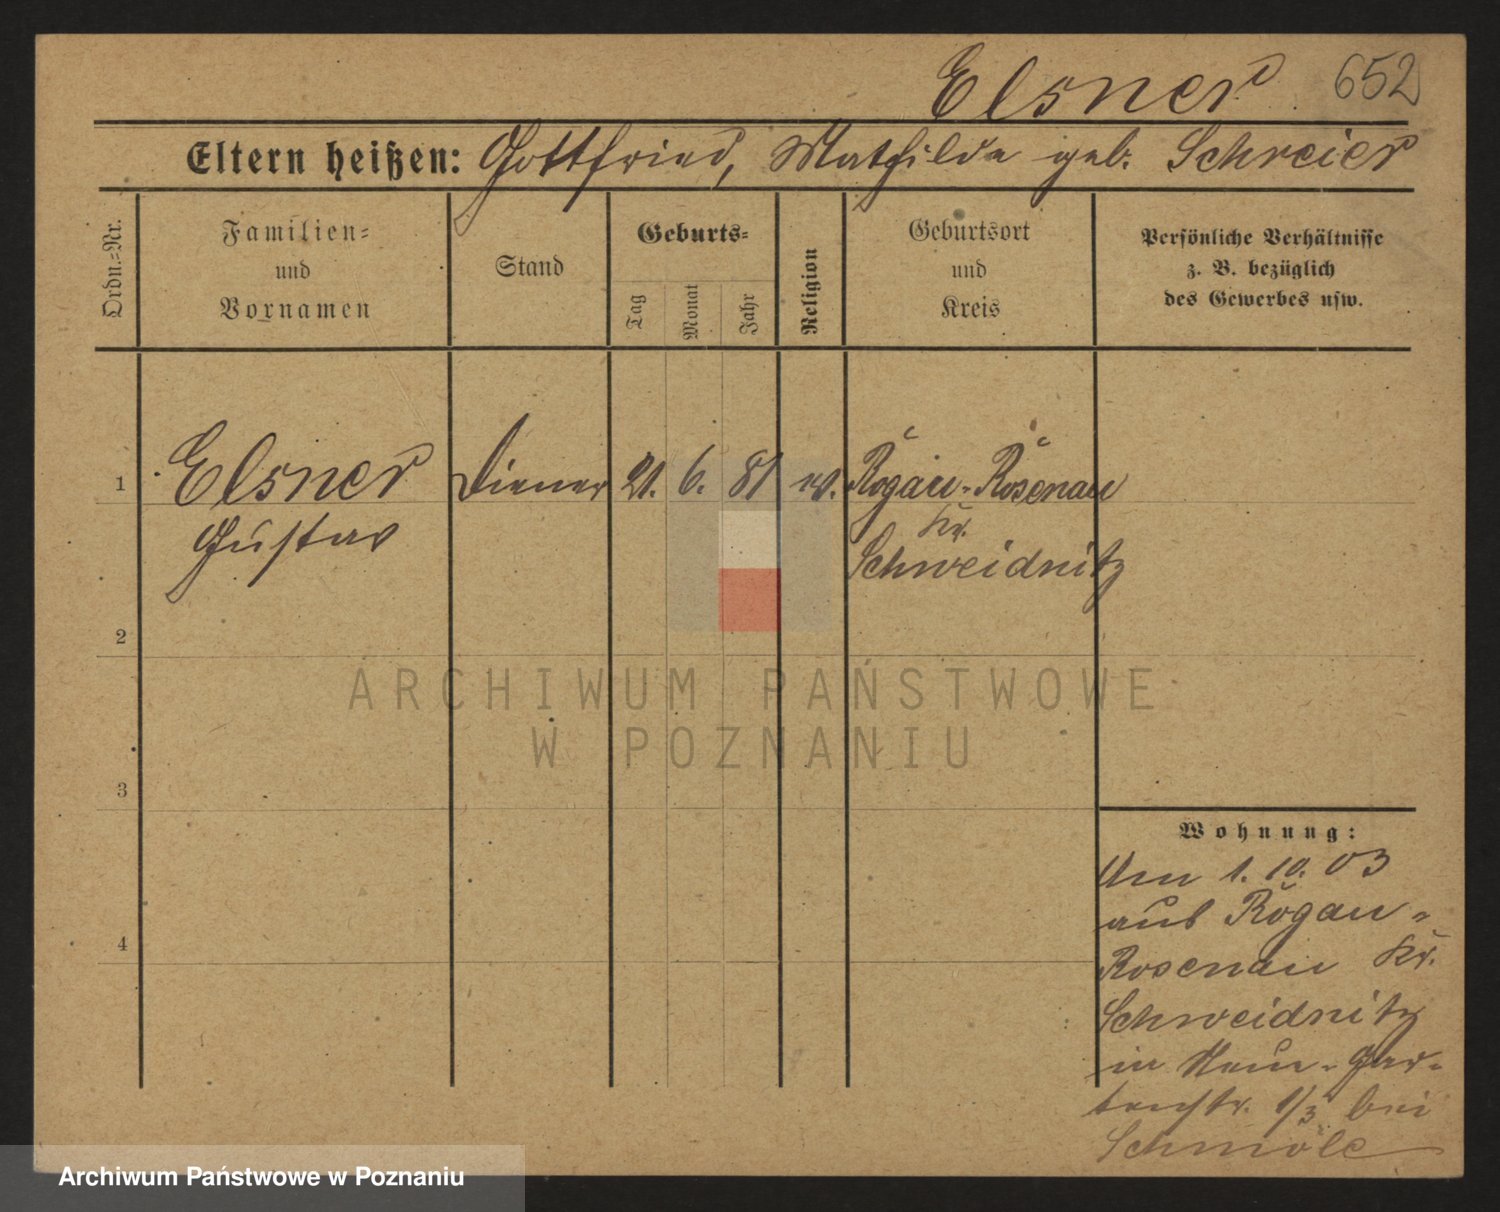 Elsner 652
Eltern heißen: Gottfried, Mathilde geb. Schreier
Ordn.-Nr.
Familien-
und
Vornamen
Stand
Geburts-
Tag
Monat
Jahr
Religion
Geburtsort
und
Kreis
Persönliche Verhältnisse
z. B. bezüglich
des Gewerbes usw.
1 Elsner Diener 21. 6. 81 ev. Rogau-Rosenau
Gustav
Kr.
Schweidnitz
2
3
4
ARCHIWUM PAŃSTWOWE
W POZNANIU
Wohnung:
Am 1. 10. 03
aus Rogau-
Rosenau Kr.
Schweidnitz
in Neue-Gar-
tenstr. 1/3 bei
Archiwum Państwowe w Poznaniu